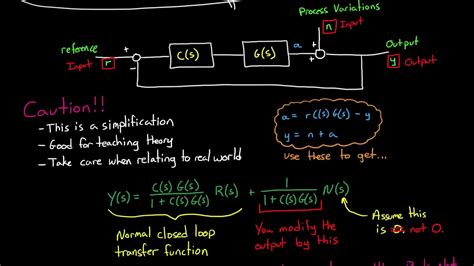 Process Variations
n Input
reference
Input r
+
-
C(s)
G(s)
a
+
+
Output
y Output
Caution!!
- This is a simplification
- Good for teaching theory
- Take care when relating to real world
a = r C(s)G(s) - y
y = n + a
use these to get...
Y(s) = C(s)G(s) / 1 + C(s)G(s) R(s) + 1 / 1 + C(s)G(s) N(s)
Normal closed loop
transfer function
You modify the
output by this
Assume this
is 0. not 0.